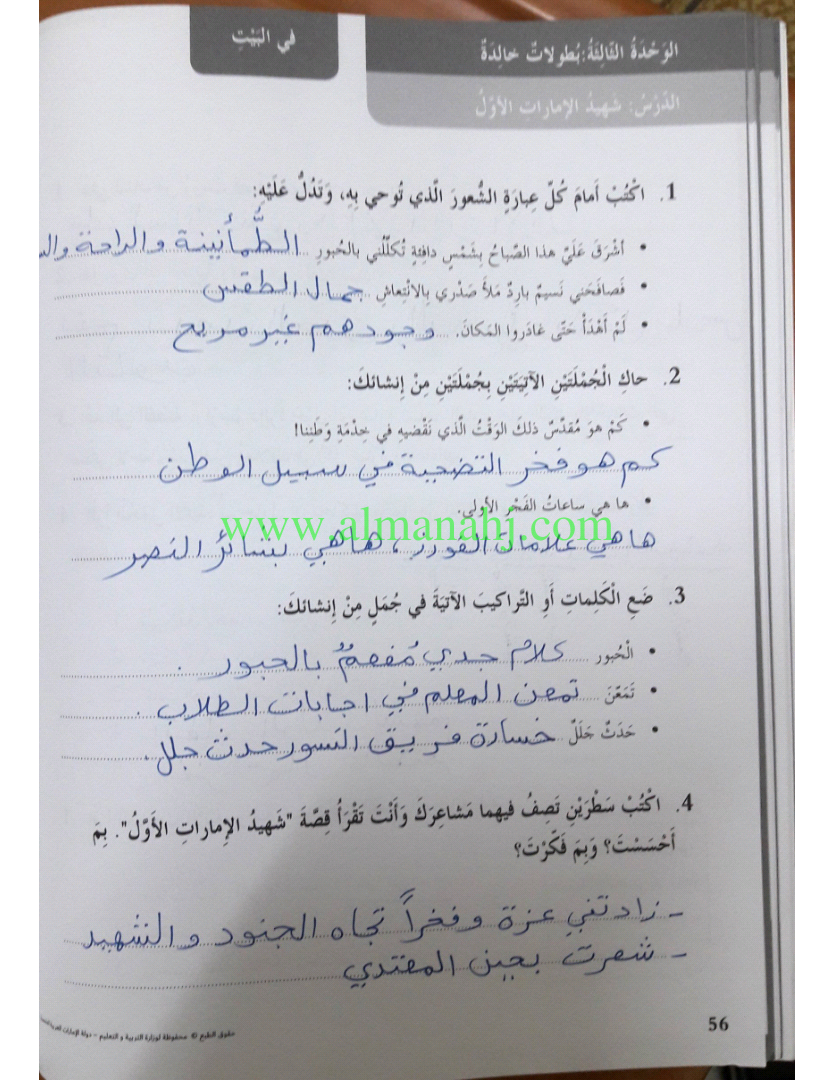 في البَيْتِ
الوَحْدَةُ الثّالِثَةُ: بُطولاتٌ خالِدَةٌ
الدَّرْسُ: شَهيدُ الإماراتِ الأوَّلُ
1. اكْتُبْ أَمامَ كُلِّ عِبارَةٍ الشُّعورَ الَّذي توحي بِهِ، وَتَدُلُّ عَلَيْهِ:
• أشْرَقَ عَلَيَّ هذا الصَّباحُ بِشَمْسٍ دافِئَةٍ تُكَلِّلُني بالحُبورِ الطُّمأنينة والراحة
• فَصافَحَني نَسيمٌ بارِدٌ مَلأَ صَدْري بِالانْتِعاشِ جمال الطقس
• لَمْ أَهْدَأْ حَتّى غادَروا المَكانَ. وجودهم غير مريح
2. حاكِ الْجُمْلَتَيْنِ الآتِيَتَيْنِ بِجُمْلَتَيْنِ مِنْ إنشائكَ:
• كَمْ هوَ مُقَدَّسٌ ذلكَ الوَقْتُ الَّذي نَقْضيهِ في خِدْمَةِ وَطَنِنا!
كم هو فخر التضحية في سبيل الوطن
• ها هي ساعاتُ الفَجْرِ الأولى.
www.almanahj.com
ها هي علامات الفوز، ها هي بشائر النصر
3. ضَعِ الْكَلِماتِ أَوِ التَّراكيبَ الآتيَةَ في جُمَلٍ مِنْ إنشائكَ:
• الْحُبور كلام جدي مُفعمٌ بالحبور.
• تَمَعَّنَ تمعن المعلم في اجابات الطلاب.
• حَدَثٌ جَلَلٌ خسارة فريق النسور حدث جلل.
4. اكْتُبْ سَطْرَيْنِ تَصِفُ فيهما مَشاعِرَكَ وَأَنْتَ تَقْرَأُ قِصَّةَ "شَهيدُ الإماراتِ الأَوَّلُ". بِمَ
أَحْسَسْتَ؟ وَبِمَ فَكَّرْتَ؟
- زادتني عزة وفخراً تجاه الجنود والشهيد
- شعرت بجبن المعتدي
56
حقوق الطبع © محفوظة لوزارة التربية و التعليم - دولة الإمارات العربية